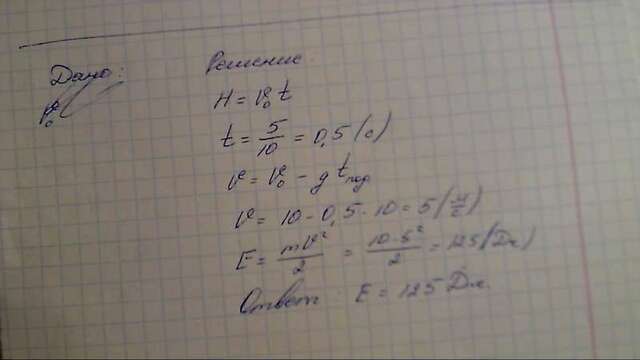 Дано:
Решение:
V₀
H = V₀ t
t = 5/10 = 0,5 (с)
V = V₀ - g t под
V = 10 - 0,5 · 10 = 5 (м/с)
E = mV²/2 = 10 · 5²/2 = 125 (Дж)
Ответ: E = 125 Дж.